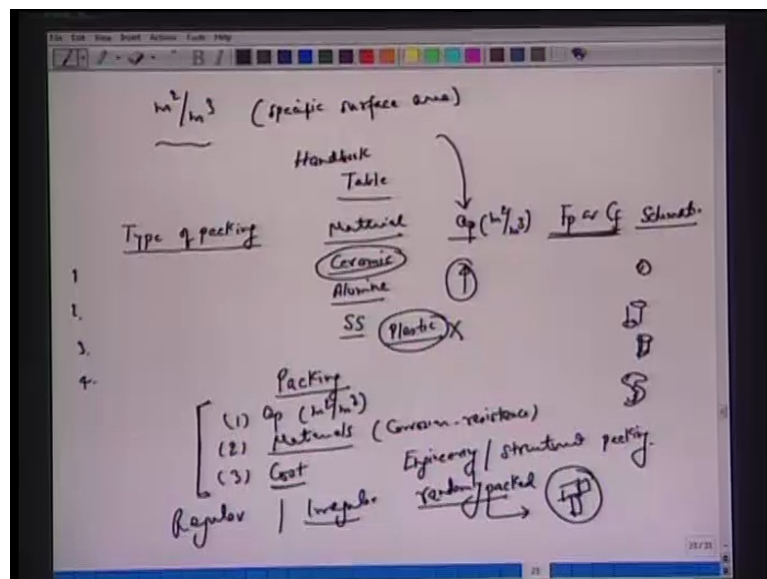 File Edit View Insert Actions Tools Help
B I
m²/m³ (specific surface area)
Handbook
Table
Type of packing Material ap (m²/m³) Fp or Cf Schmat.
1 Ceramic ↑
Alumine
2. SS Plastic X
3.
4.
Packing
(1) ap (m²/m³)
(2) Materials (Corrosion-resistance)
(3) Cost
Engineering / structured packing.
Regular / Irregular randomly packed
21/21
21